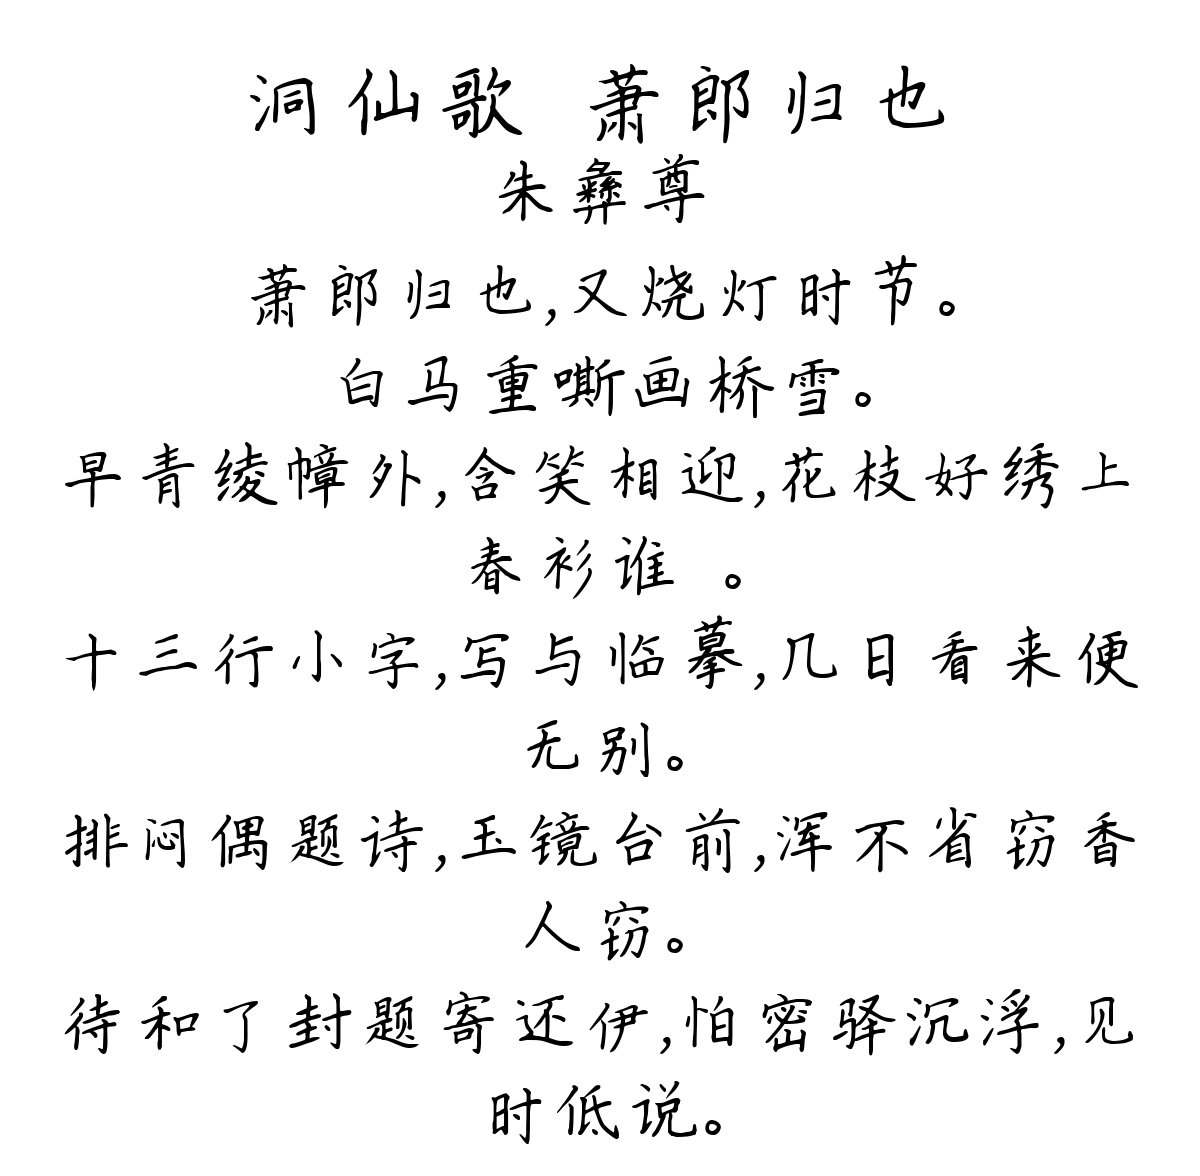 洞仙歌 萧郎归也
朱彝尊
萧郎归也,又烧灯时节。
白马重嘶画桥雪。
早青绫幛外,含笑相迎,花枝好绣上
春衫谁 。
十三行小字,写与临摹,几日看来便
无别。
排闷偶题诗,玉镜台前,浑不省窃香
人窃。
待和了封题寄还伊,怕密驿沉浮,见
时低说。